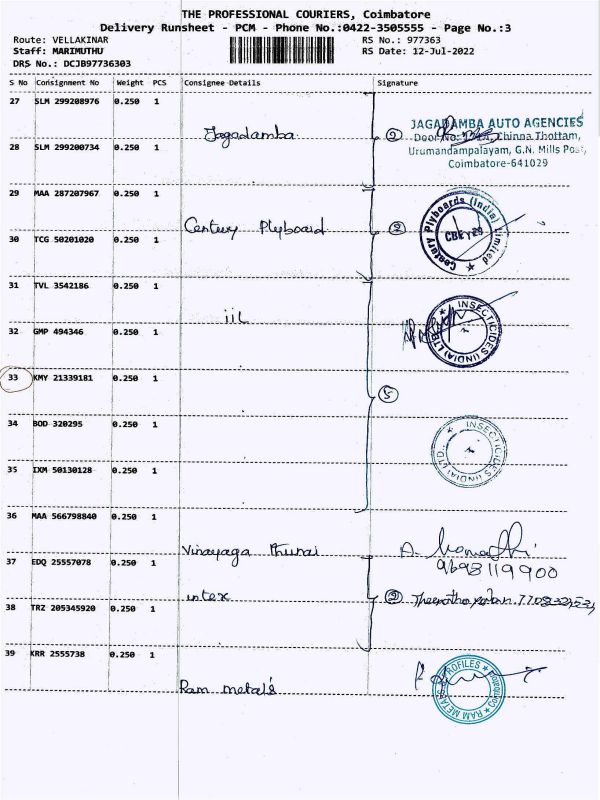 THE PROFESSIONAL COURIERS, Coimbatore
Delivery Runsheet - PCM - Phone No.:0422-3505555 - Page No.:3
Route: VELLAKINAR
RS No.: 977363
Staff: MARIMUTHU
RS Date: 12-Jul-2022
DRS No.: DCJB97736303
S No Consignment No Weight PCS Consignee Details Signature
27 SLM 299208976 0.250 1
Jagadamba. 2
JAGADAMBA AUTO AGENCIES
Chinna Thottam,
Urumandampalayam, G.N. Mills Post,
Coimbatore-641029
28 SLM 299200734 0.250 1
29 MAA 287207967 0.250 1
Century Plyboard 2
Century Plyboards (India) Limited
CBE
30 TCG 50201020 0.250 1
31 TVL 3542186 0.250 1
iiL
INSECTICIDES (INDIA) LTD.
32 GMP 494346 0.250 1
33 KMY 21339181 0.250 1
5
34 BOD 320295 0.250 1
INSECTICIDES (INDIA) LTD.
35 IXM 50130128 0.250 1
36 MAA 566798840 0.250 1
Vinayaga
37 EDQ 25557078 0.250 1
intex
38 TRZ 205345920 0.250 1
39 KRR 2555738 0.250 1
Ram metal's
RAM METAL PROFILES